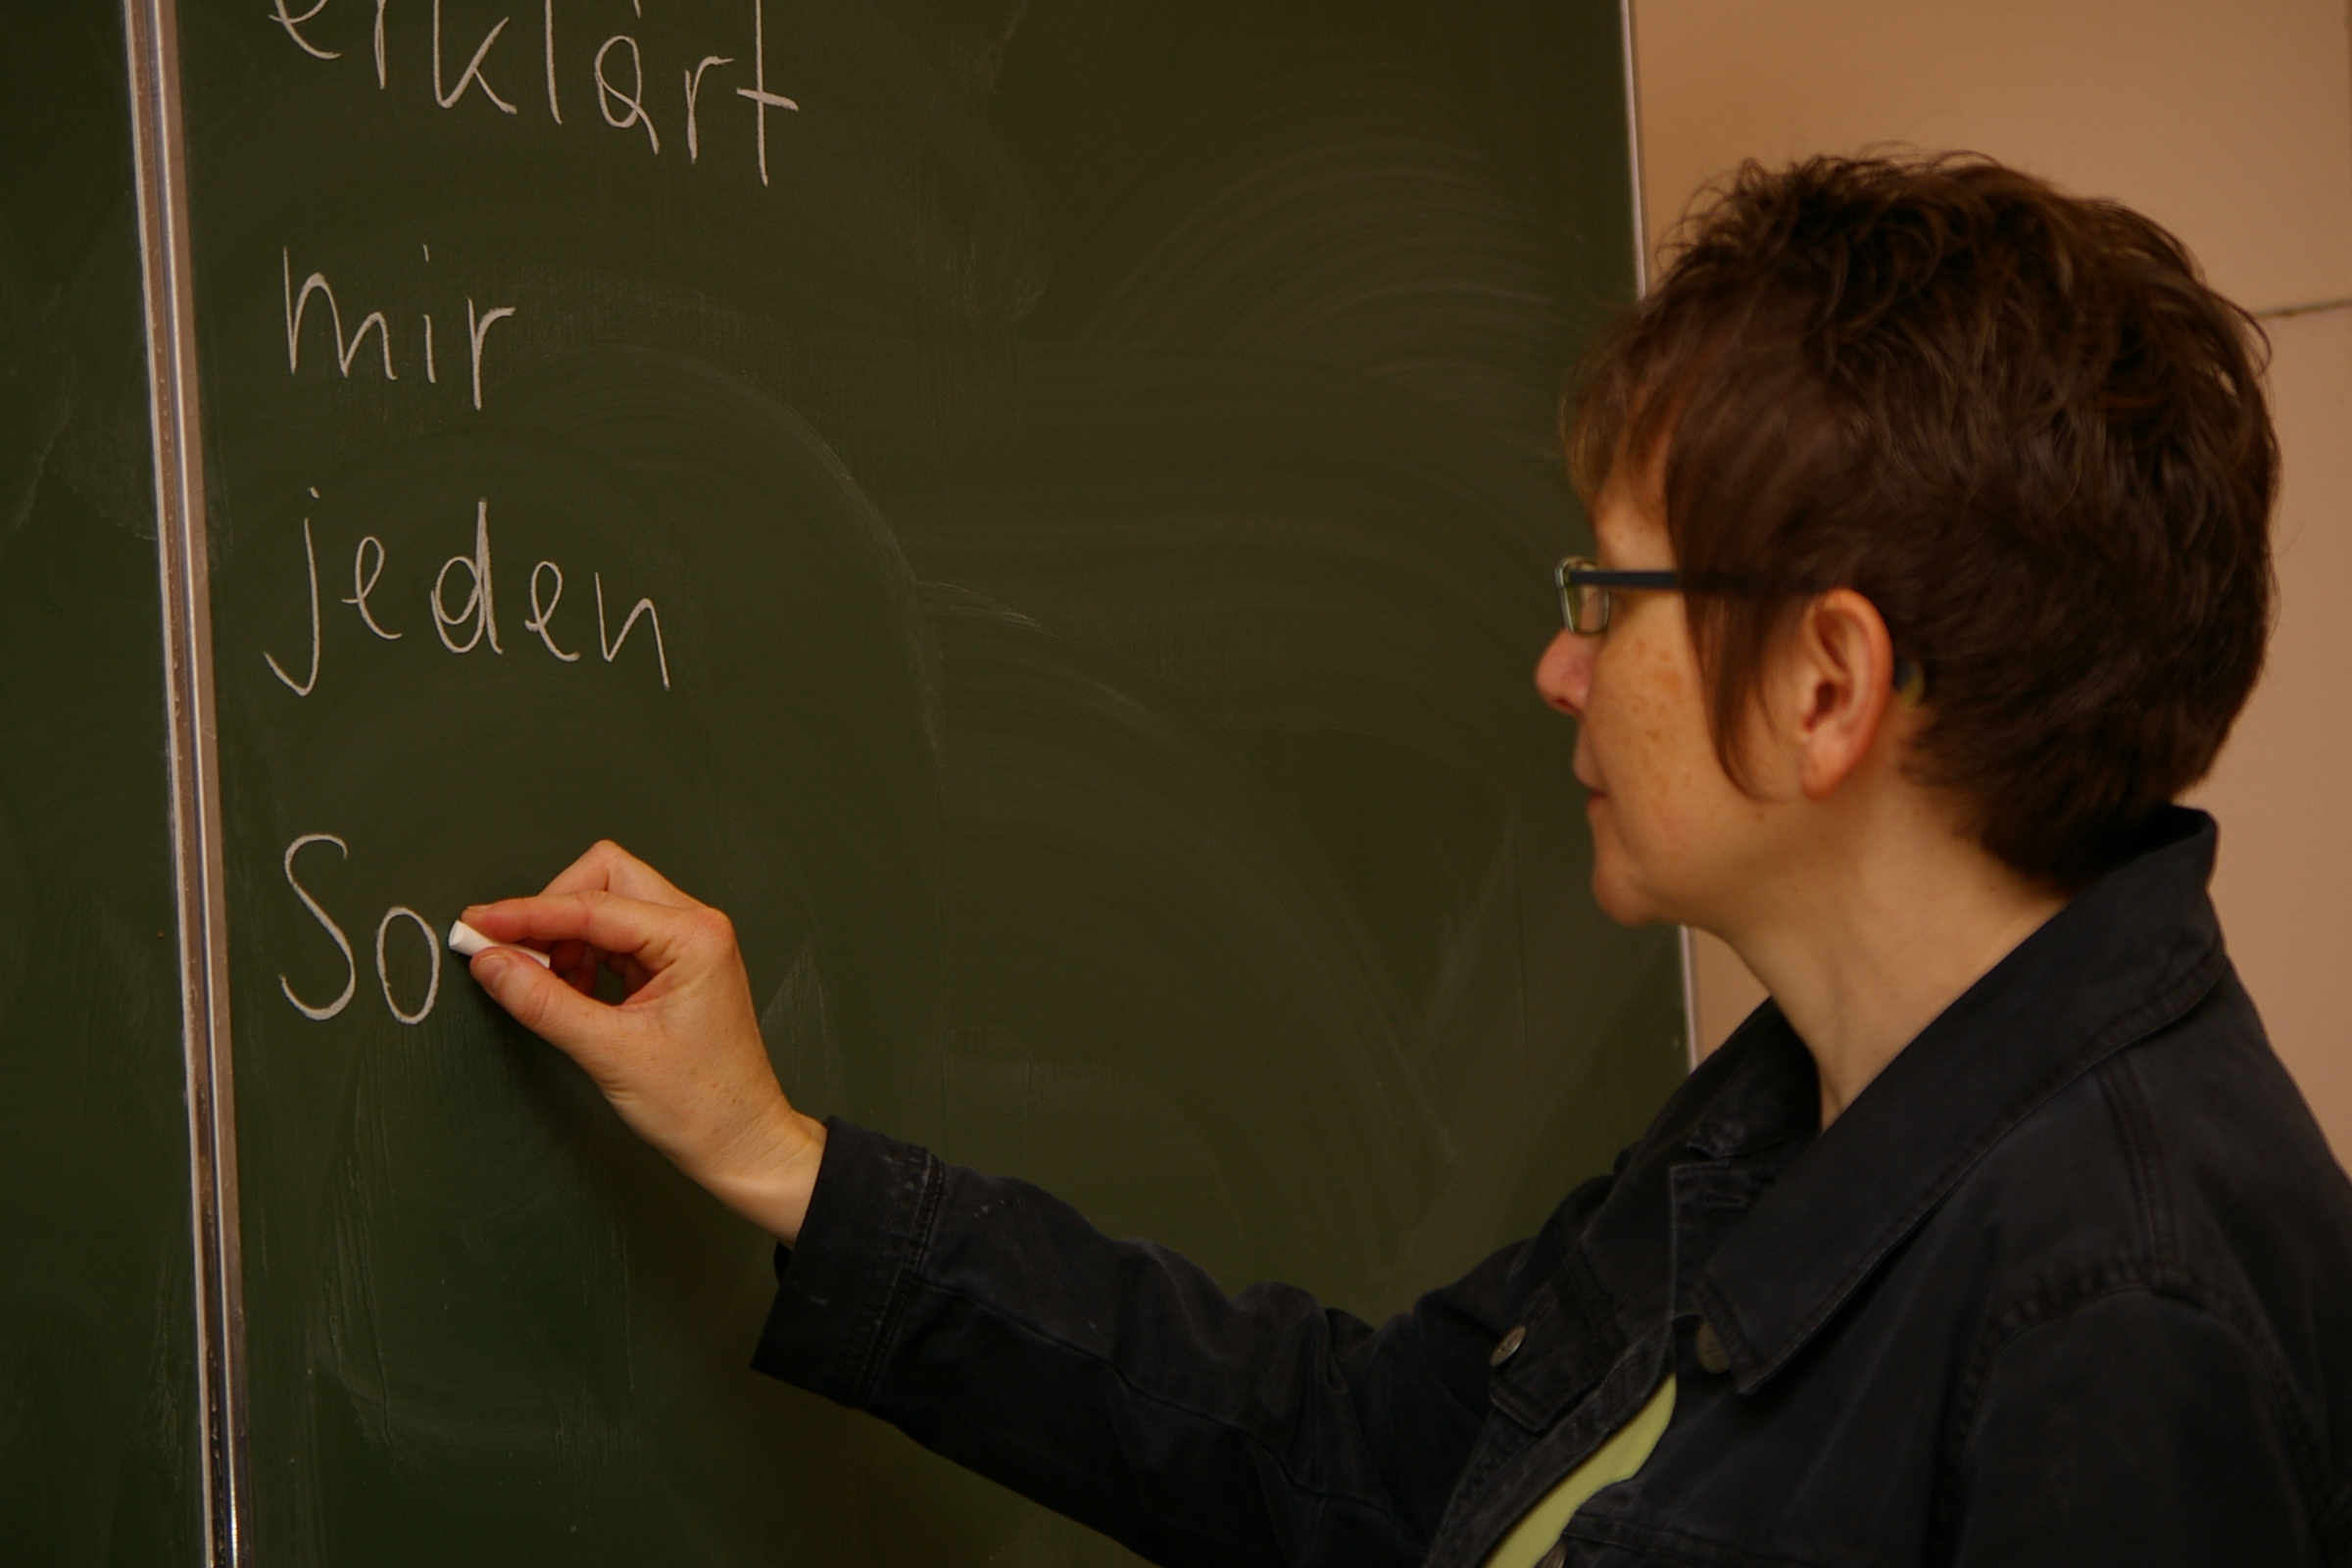 erklärt
mir
jeden
So